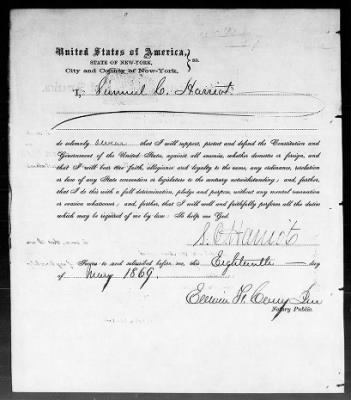 United States of America,
STATE OF NEW-YORK, } ss.
City and County of New-York,
I, Samuel C. Harriot
do solemnly swear that I will support, protect and defend the Constitution and
Government of the United States, against all enemies, whether domestic or foreign, and
that I will bear true faith, allegiance and loyalty to the same, any ordinance, resolution
or law of any State convention or legislature to the contrary notwithstanding; and further,
that I do this with a full determination, pledge and purpose, without any mental reservation
or evasion whatsoever; and, further, that I will well and faithfully perform all the duties
which may be required of me by law: So help me God.
S. C. Harriot
Sworn to and subscribed before me, this Eighteenth day
of May 1869.
Edwin F. Corey Jr
Notary Public.